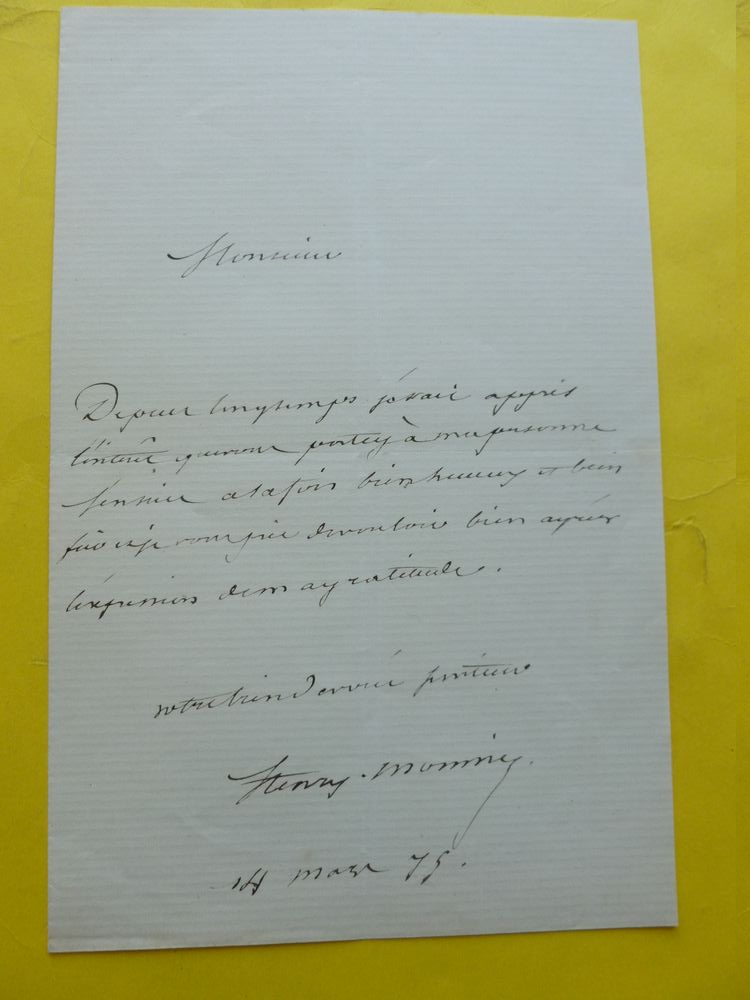 Monsieur
Depuis longtemps j'avais appris
l'intérêt que vous portez à ma personne
j'en suis a la fois bien heureux et bien
et je vous prie de vouloir bien agréer
l'expression de ma gratitude.
votre bien dévoué serviteur
Henry Monnier.
14 mars 75.